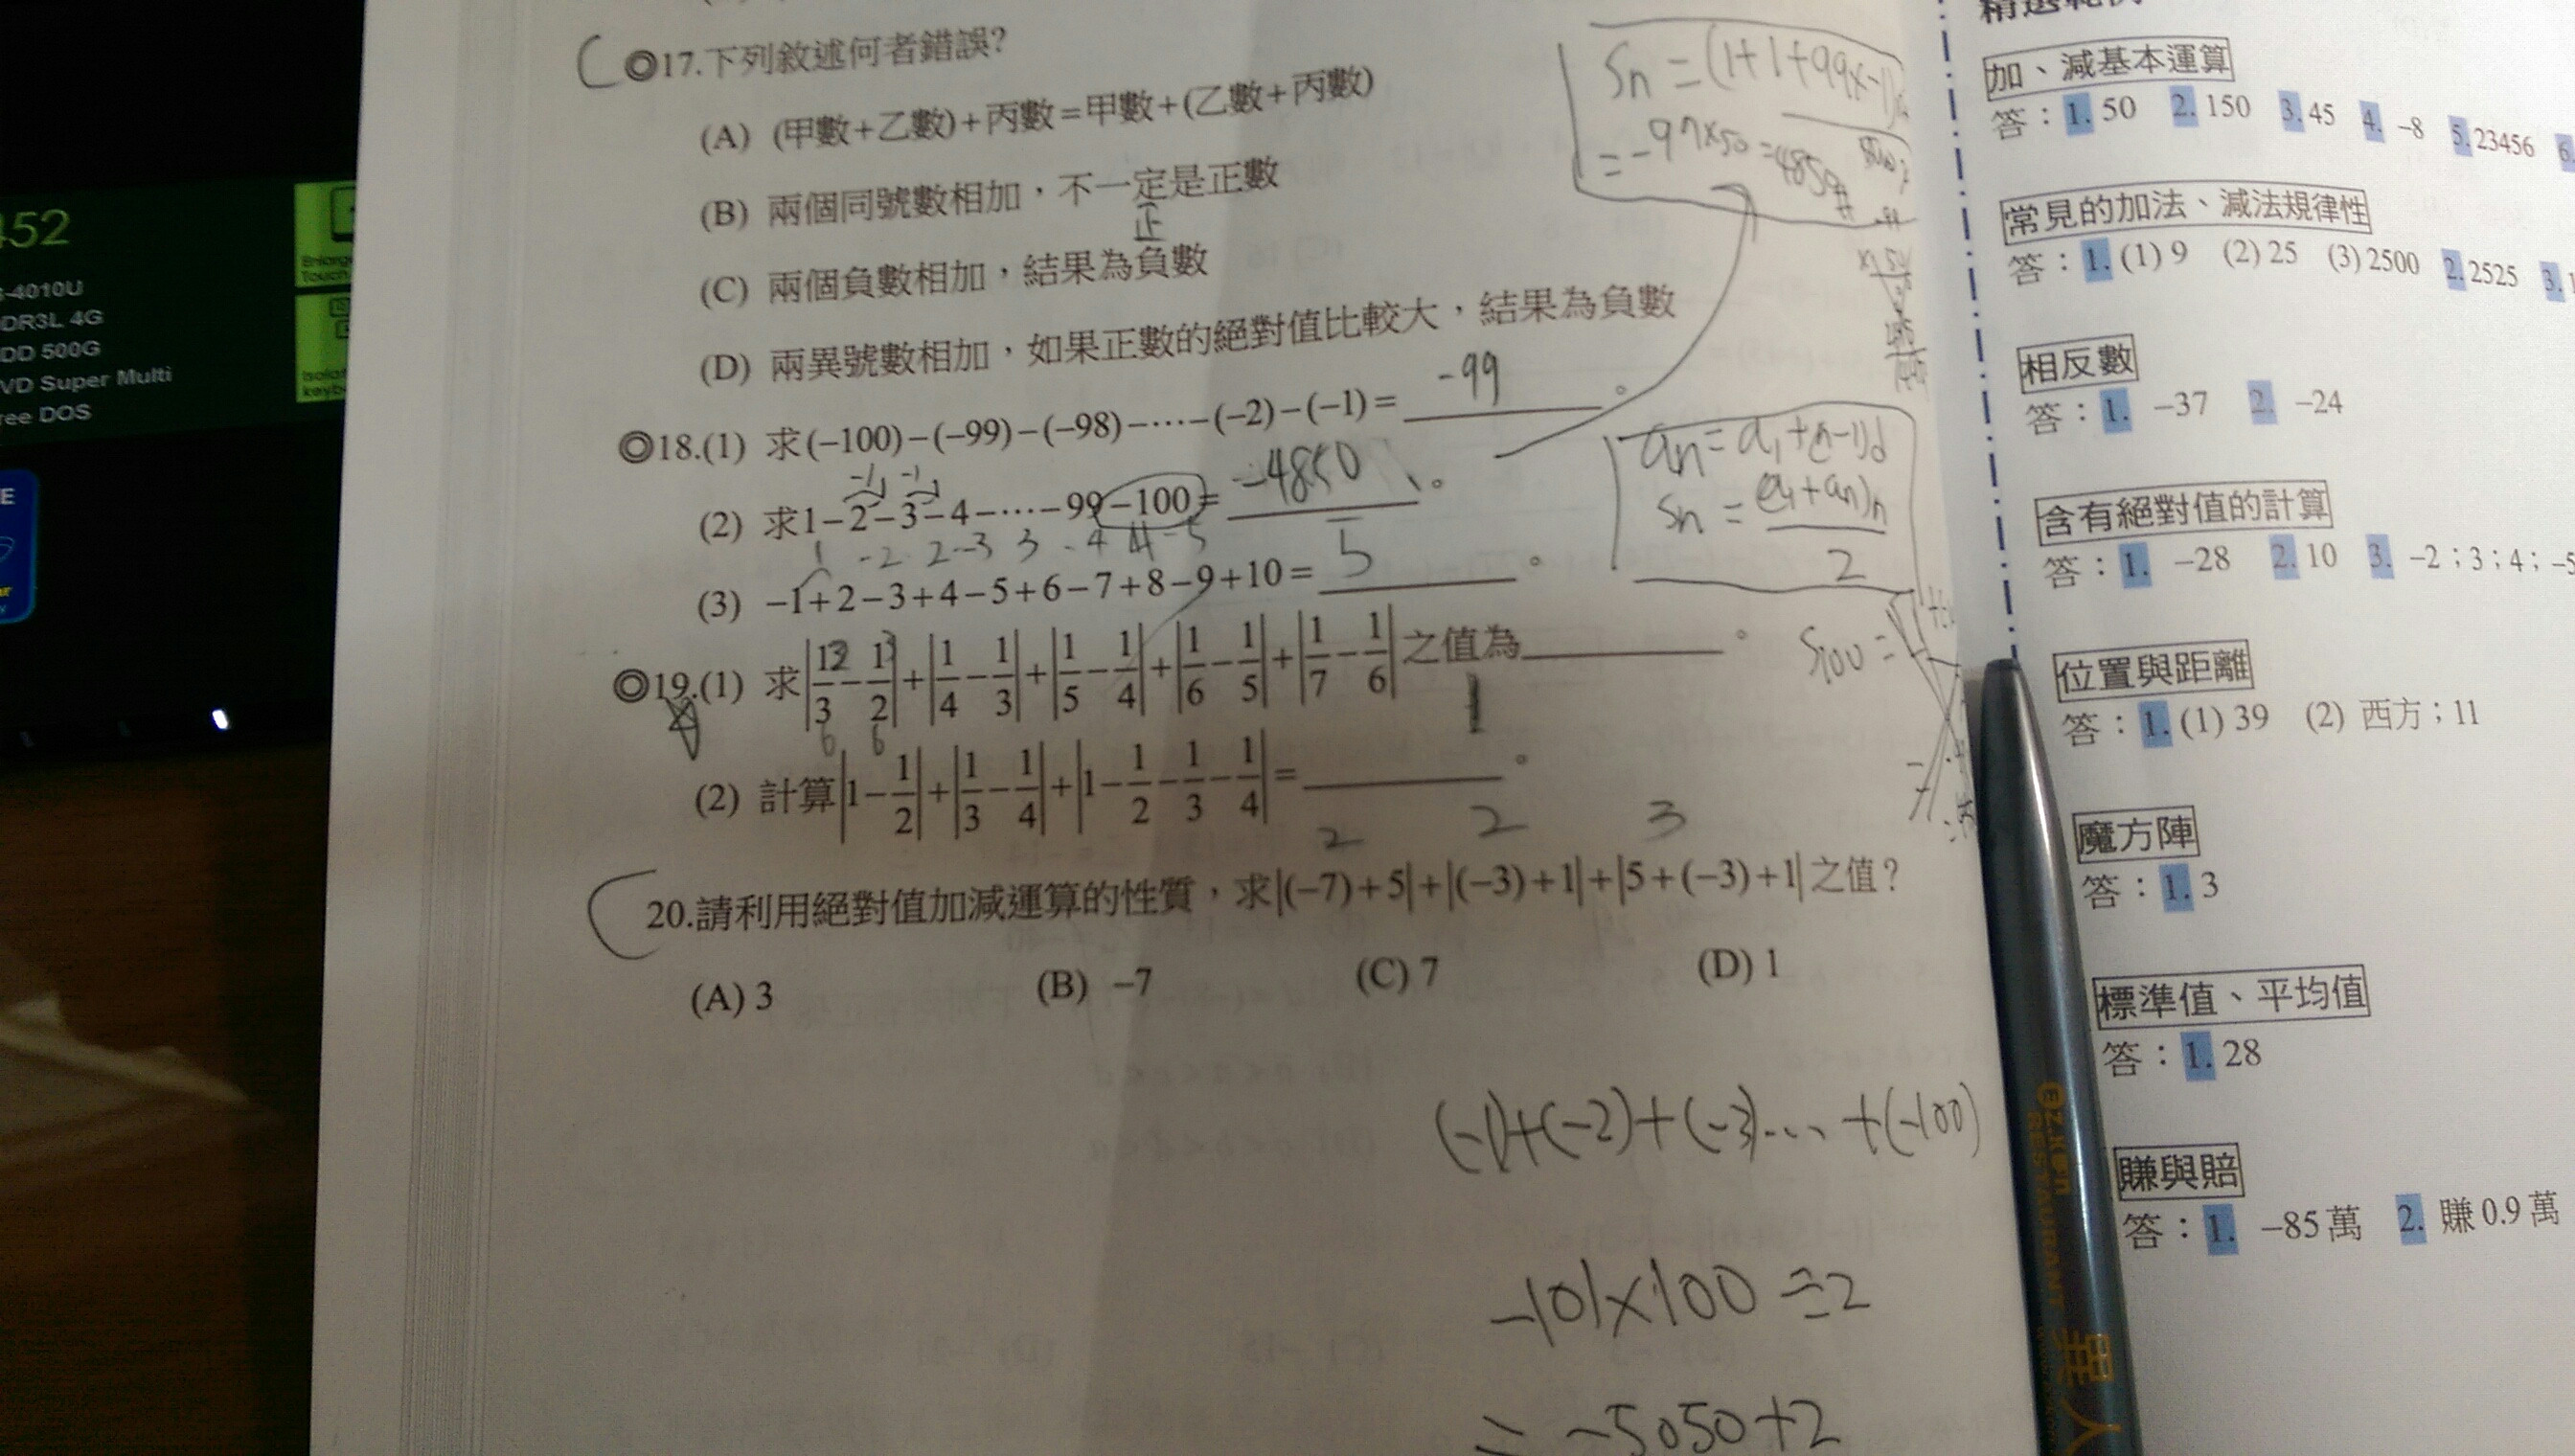 452
-4010U
DDR3L 4G
DD 500G
VD Super Multi
ree DOS
◎17.下列敘述何者錯誤?
(A) (甲數+乙數)+丙數=甲數+(乙數+丙數)
(B) 兩個同號數相加，不一定是正數
正
(C) 兩個負數相加，結果為負數
(D) 兩異號數相加，如果正數的絕對值比較大，結果為負數
◎18.(1) 求(−100)−(−99)−(−98)−⋯−(−2)−(−1)= -99 。
(2) 求1−2−3−4−⋯−99−100= -4850 。
1 -2 2 -3 3 -4 4 -5
(3) −1+2−3+4−5+6−7+8−9+10= 5 。
◎19.(1) 求|1/3−1/2|+|1/4−1/3|+|1/5−1/4|+|1/6−1/5|+|1/7−1/6|之值為 。
(2) 計算|1−1/2|+|1/3−1/4|+|1−1/2−1/3−1/4|= 。
2 2 3
20.請利用絕對值加減運算的性質，求|(−7)+5|+|(−3)+1|+|5+(−3)+1|之值？
(A) 3 (B) −7 (C) 7 (D) 1
an = a1+(n-1)d
Sn = (a1+an)n / 2
S100 =
(-1)+(-2)+(-3)... +(-100)
-101×100÷2
= -5050+2
加、減基本運算
答：1. 50 2. 150 3. 45 4. −8 5. 23456 6.
常見的加法、減法規律性
答：1. (1) 9 (2) 25 (3) 2500 2. 2525 3.
相反數
答：1. −37 2. −24
含有絕對值的計算
答：1. −28 2. 10 3. −2；3；4；−5
位置與距離
答：1. (1) 39 (2) 西方；11
魔方陣
答：1. 3
標準值、平均值
答：1. 28
賺與賠
答：1. −85萬 2. 賺0.9萬
RESTAURANT
異人